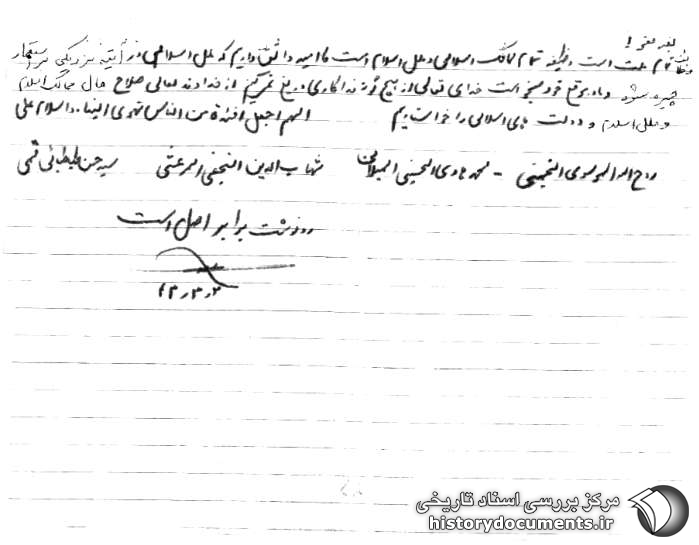 بقیه صفحه ۱
تمام ملت است وظیفه تمام ممالک اسلامی و ملل اسلام است ما امید واثق داریم که ملل اسلامی در آتیه نزدیکی بر استعمار
چیره شود و ما به موقع خود منجز است خدای تعالی از هیچ گونه فداکاری دریغ نمی‌کنیم از خداوند تعالی صلاح حال ممالک اسلام
و ملل اسلام و دولت های اسلامی را خواستاریم اللهم اجعل افئدة من الناس تهوی الینا. والسلام علی
روح الله الموسوی الخمینی - محمد هادی الحسینی المیلانی شهاب الدین النجفی المرعشی سید حسن طباطبائی قمی
رونوشت برابر اصل است
۴۳٫۳٫۲
مرکز بررسی اسناد تاریخی
historydocuments.ir